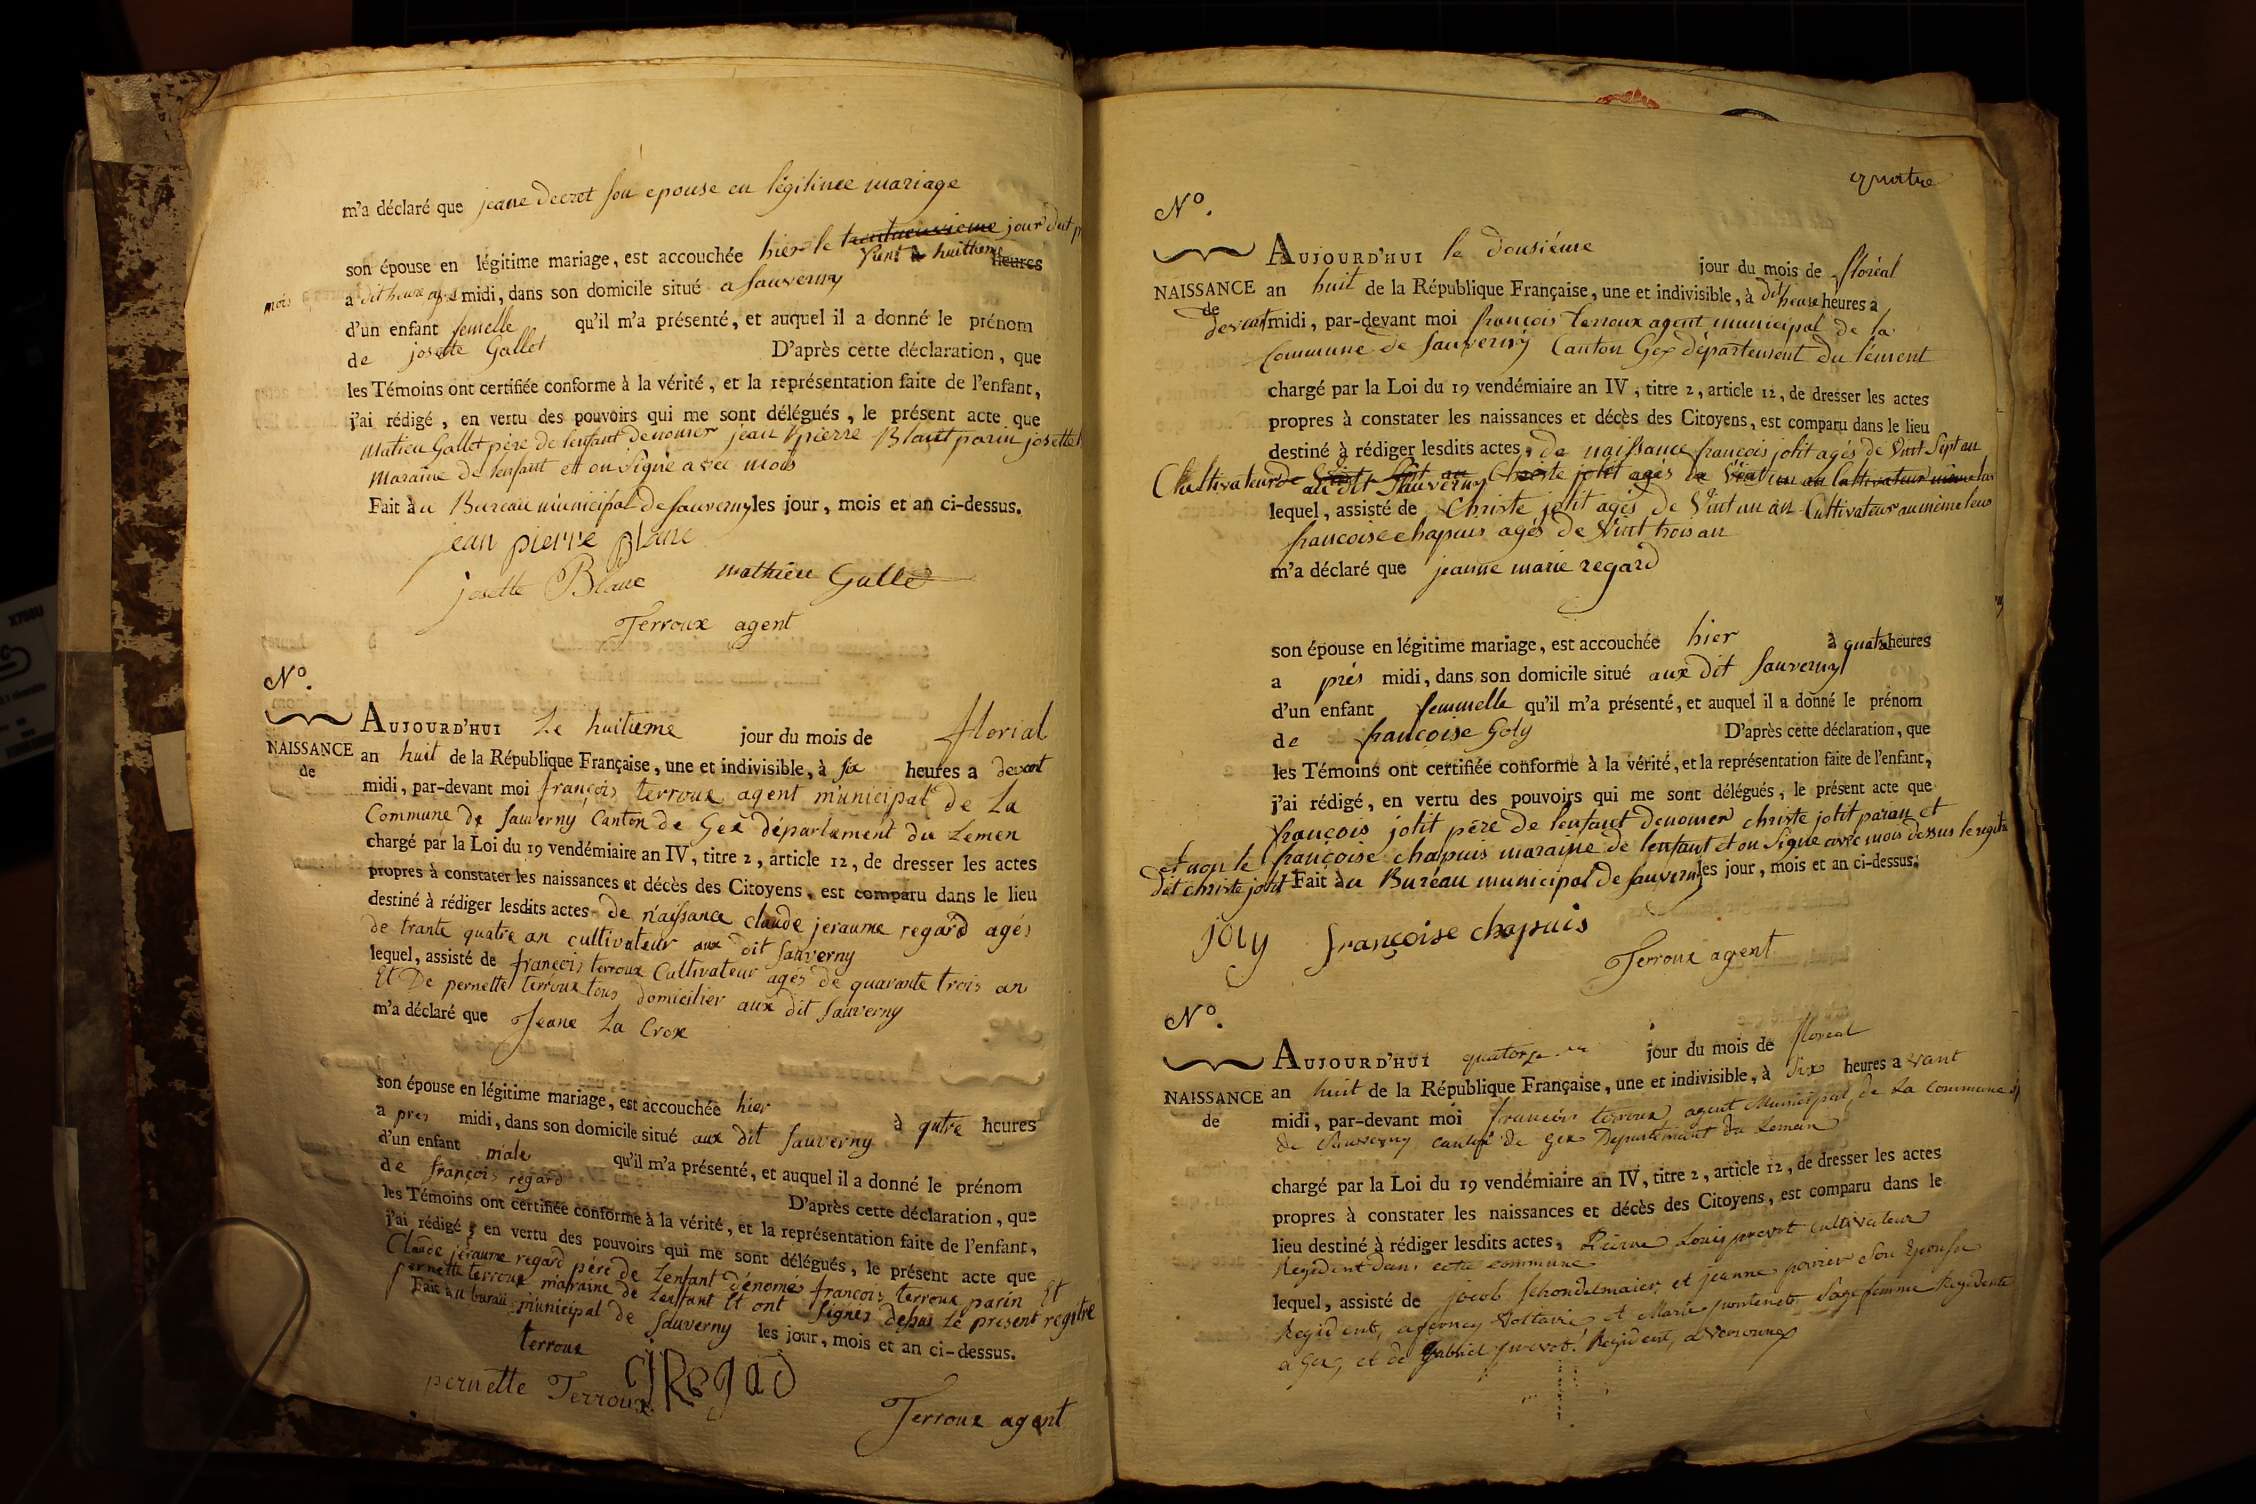 m'a déclaré que jeane decrot son epouse en légitimee mariage
son épouse en légitime mariage, est accouchée hier le jour dut
Vint huitieme heures
mois a dit heure apré midi, dans son domicile situé a Sauverny
d'un enfant femelle qu'il m'a présenté, et auquel il a donné le prénom
de josette Gallet D'après cette déclaration, que
les Témoins ont certifiée conforme à la vérité, et la représentation faite de l'enfant,
j'ai rédigé, en vertu des pouvoirs qui me sont délégués, le présent acte que
Matieu Gallet pére de lenfant denomer jean pierre Blant parin josette
Maraine de lenfant et on Signé avec mois
Fait àu Bureau municipal de Sauverny les jour, mois et an ci-dessus.
jean pierre Blanc
josette Blanc mathieu Gallet
Terroux agent
N°.
AUJOURD'HUI Le huitieme jour du mois de florial
NAISSANCE an huit de la République Française, une et indivisible, à six heures a devant
de
midi, par-devant moi françois terroux agent municipal de La
Commune de Sauverny Canton de Gex département du Lemen
chargé par la Loi du 19 vendémiaire an IV, titre 2, article 12, de dresser les actes
propres à constater les naissances et décès des Citoyens, est comparu dans le lieu
destiné à rédiger lesdits actes de naissance claude jeraume regard agés
de trante quatre an cultivateur aux dit Sauverny
lequel, assisté de françois terroux Cultivateur agés de quarante trois an
Et De pernette terroux tous domicilier aux dit Sauverny
m'a déclaré que Jeane La Crox
son épouse en légitime mariage, est accouchée hier à qutre heures
a pres midi, dans son domicile situé aux dit Sauverny
d'un enfant male qu'il m'a présenté, et auquel il a donné le prénom
de françois regard D'après cette déclaration, que
les Témoins ont certifiée conforme à la vérité, et la représentation faite de l'enfant,
j'ai rédigé, en vertu des pouvoirs qui me sont délégués, le présent acte que
Claude jéraume regard pére de Lenfant dénomés françois terroux parin Et
pernette terroux maraine de Lenfant Et ont Signés desus Le present regitre
Fait àu buraü municipal de Sauverny les jour, mois et an ci-dessus.
terroux
CJRegad
pernette Terroux
Terroux agent
quatre
N°.
AUJOURD'HUI le dousiéme jour du mois de floréal
NAISSANCE an huit de la République Française, une et indivisible, à dit heuse heures a
de
devant midi, par-devant moi françois terroux agent municipal de la
Commune de Sauverny Canton Gex département du lément
chargé par la Loi du 19 vendémiaire an IV, titre 2, article 12, de dresser les actes
propres à constater les naissances et décès des Citoyens, est comparu dans le lieu
destiné à rédiger lesdits actes, de naissance françois jolit agés de Vint Sept an
Chultivateur au dit Sauverny
lequel, assisté de Christe jolit agés de Vint un an Cultivateur au même leus
francoise chapuis agés de Vint trois an
m'a déclaré que jeanne marie regard
son épouse en légitime mariage, est accouchée hier à quatre heures
a prés midi, dans son domicile situé aux dit Sauverny
d'un enfant femmelle qu'il m'a présenté, et auquel il a donné le prénom
de francoise Goly D'après cette déclaration, que
les Témoins ont certifiée conforme à la vérité, et la représentation faite de l'enfant,
j'ai rédigé, en vertu des pouvoirs qui me sont délégués, le présent acte que
françois jolit pére de lenfant denomer christe jolit parian et
françoise chapuis maraine de lenfant et on Signe avec mois dessus le regitre
et non le
dit christe jolit Fait àu Buréau municipal de Sauverny les jour, mois et an ci-dessus.
joly françoise chapuis
Terroux agent
N°.
AUJOURD'HUI quatorze jour du mois de floreal
NAISSANCE an huit de la République Française, une et indivisible, à Six heures a vant
de
midi, par-devant moi francois terroux agent Municipal de La Commune
de Sauverny canton de Gex Departement du Leman
chargé par la Loi du 19 vendémiaire an IV, titre 2, article 12, de dresser les actes
propres à constater les naissances et décès des Citoyens, est comparu dans le
lieu destiné à rédiger lesdits actes, Pierre Louis prevot cultivateur
Regident dans cette commune
lequel, assisté de jacob Schondelmaier, et jeanne poirier Son Epouse
Regident, a ferney Voltaire et Marie pontenet Sage femme Regidente
a Gex, et de Gabriel prevot Regident, a Versonnex